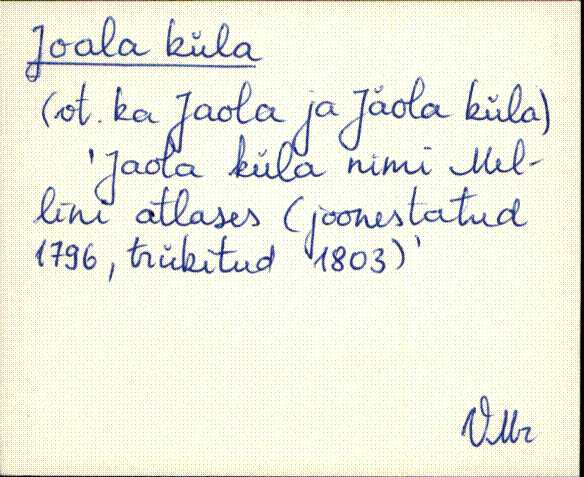 Joala küla
(ot. ka Jaola ja Jäola küla)
'Jaola küla nimi Mel-
lini atlases (joonestatud
1796, trükitud 1803)'
VMr